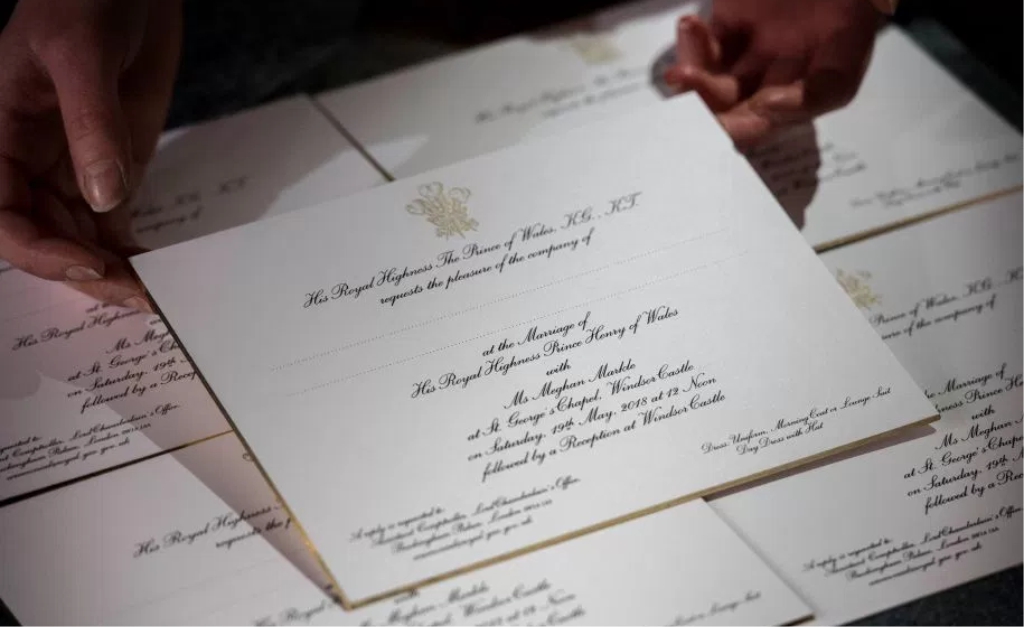 His Royal Highness The Prince of Wales, K.G., K.T.
requests the pleasure of the company of
at the Marriage of
His Royal Highness Prince Henry of Wales
with
Ms Meghan Markle
at St. George's Chapel, Windsor Castle
on Saturday, 19th May, 2018 at 12 Noon
followed by a Reception at Windsor Castle
Dress: Uniform, Morning Coat or Lounge Suit
Day Dress with Hat
A reply is requested to:
Comptroller, Lord Chamberlain's Office,
Buckingham Palace, London
K.T.
His Royal Highness
at the
His Royal Highness
Ms Megh
at St. George's Cha
on Saturday, 19th
followed by a Recep
Lord Chamberlain's Office,
His Royal Highness
requests the p
Meghan Markle
Windsor Castle
Prince of Wales, K.G., K.
of the company of
Marriage of
with
Ms Meghan
at St. George's Chape
on Saturday, 19th
followed by a Rec
A reply is requested to:
Comptroller, Lord Chamberlain's Office,
Buckingham Palace, London
or Lounge Suit